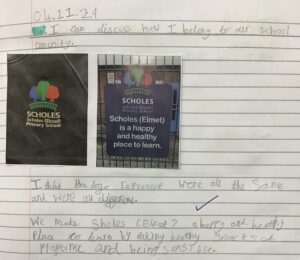 04.11.21
I can discuss how I belong to our school
comunity.
SCHOLES
Scholes (Elmet)
Primary School
SCHOLES
Scholes (Elmet)
Primary School
Scholes (Elmet)
is a happy
and healthy
place to learn.
I think the logo represent were all the same
and were all
We make Sholes (Elmet) a happy and healthy
place to learn by eating healthy snacks at
playtime and being sensible.